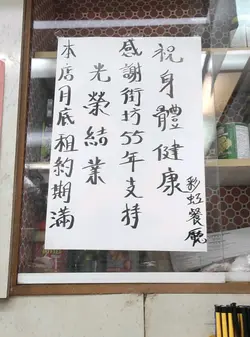 本店月底租約期滿
光榮結業
感謝街坊55年支持
祝身體健康
彩虹餐廳